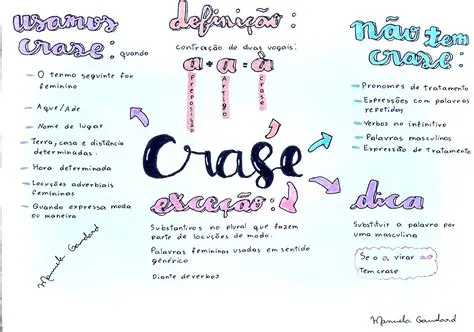 usamos
crase: quando
- O termo seguinte for
feminino
- Aque/Ade
- Nome de lugar
- Terra, casa e distância
determinadas.
- Hora determinada
- Locuções adverbiais
femininas
- Quando expressa moda
ou maneira
Manuela Gandard
definição:
contração de duas vogais:
a + a = à
preposição
Artigo
crase
não tem
crase:
- Pronomes de tratamento
- Expressões com palavras
repetidas
- Verbos no infinitivo
- Palavras masculinas
- Expressão de tratamento
Crase
exceção:
Substantivos no plural que fazem
parte de locuções de modo.
Palavras femininas usadas em sentido
genérico
Diante de verbos
dica
Substituir a palavra por
uma masculina
Se o a virar ao
Tem crase
Manuela Gandard